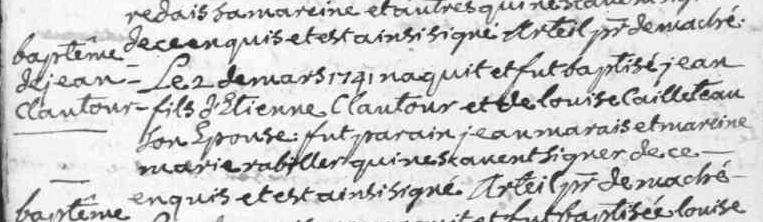 redais sa mareine et autres qui ne scavent signer
baptême de ce enquis et est ainsi signé Arteil pr̃ de maché.
de jean - Le 2 de mars 1741 naquit et fut baptisé jean
Clautour - fils d'Etienne Clautour et de louise Cailleteau
son Epouse : fut parain jean marais et mareine
marie rabiller qui ne scavent signer de ce —
enquis et est ainsi signé Arteil pr̃ de maché -
baptême naquit et fut baptisée louise